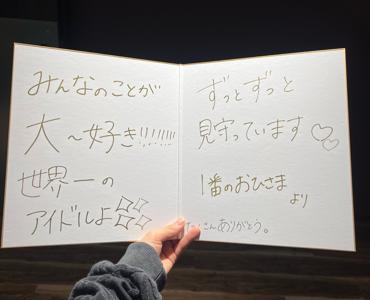 みんなのことが
大〜好き!!!!!!!!
世界一の
アイドルよ
ずっとずっと
見守っています♡♡
1番のおひさま
より
さんありがとう。